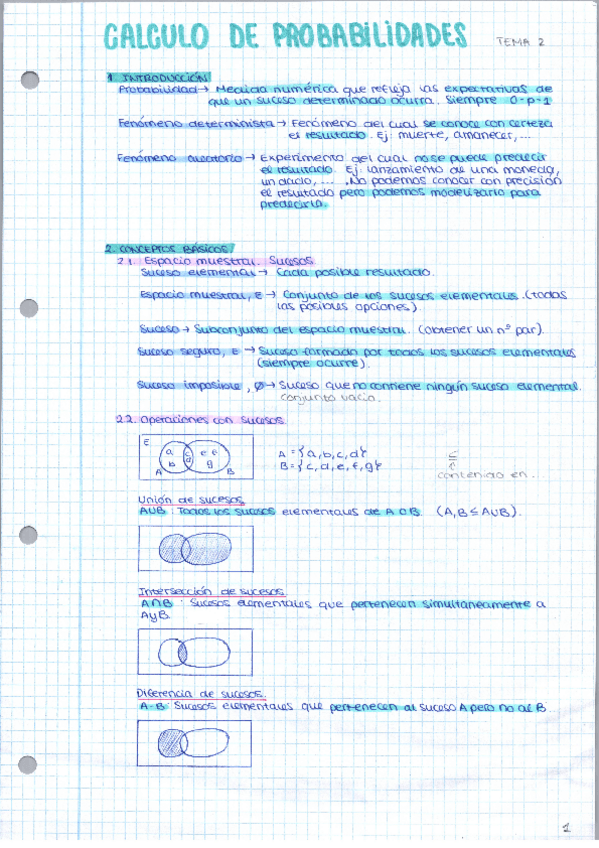 CALCULO DE PROBABILIDADES TEMA 2
1. INTRODUCCIÓN
Probabilidad → Medida numérica que refleja las expectativas de
que un suceso determinado ocurra. Siempre 0-p-1
Fenómeno determinista → Fenómeno del cual se conoce con certeza
el resultado. Ej: muerte, amanecer,...
Fenómeno aleatorio → Experimento del cual no se puede predecir
el resultado. Ej: lanzamiento de una moneda,
un dado, ... . No podemos conocer con precisión
el resultado pero podemos modelizarlo para
predecirla.
2. CONCEPTOS BÁSICOS
2.1. Espacio muestral. Sucesos
Suceso elemental → Cada posible resultado.
Espacio muestral, E → Conjunto de los sucesos elementales. (todas
las posibles opciones).
Suceso → Subconjunto del espacio muestral. (obtener un nº par).
Suceso seguro, E → Suceso formado por todos los sucesos elementales
(siempre ocurre).
Suceso imposible, ∅ → Suceso que no contiene ningún suceso elemental.
conjunto vacío.
2.2. Operaciones con sucesos
E
a c e e
b d g
A B
A = {a, b, c, d}
B = {c, d, e, f, g}
contenido en...
Unión de sucesos
A∪B : Todos los sucesos elementales de A o B. (A, B ≤ A∪B).
Intersección de sucesos
A∩B : Sucesos elementales que pertenecen simultaneamente a
A y B.
Diferencia de sucesos.
A-B : Sucesos elementales que pertenecen al suceso A pero no al B.
1